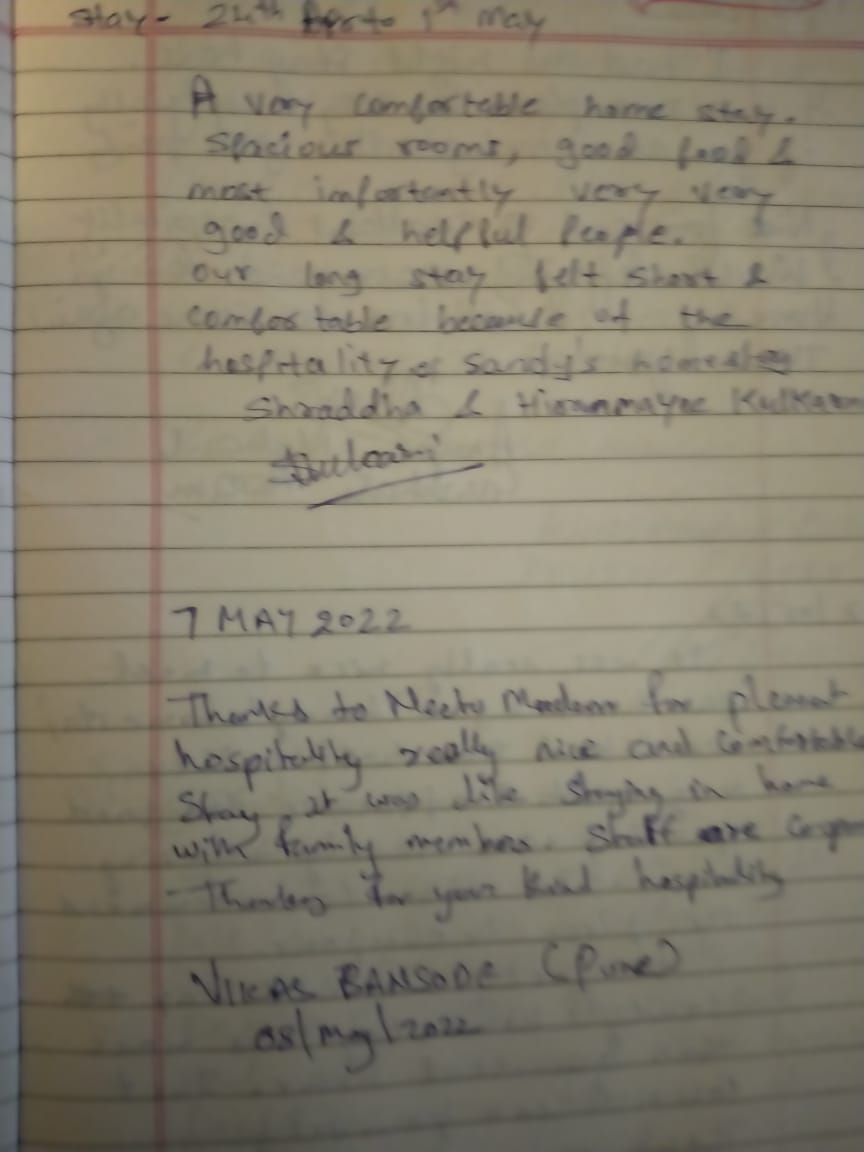 Stay - 24th Apr to 1st May
A very comfortable home stay.
Spacious rooms, good food &
most importantly very very
good & helpful people.
our long stay felt short &
comfortable because of the
hospitality of Sandy's homestay
Shraddha & Hiranmayee Kulkarni
7 MAY 2022
Thanks to Neetu Madam for pleasant
hospitality really nice and comfortable
Stay, it was like Staying in home
with family members. Staff are
Thanks for your kind hospitality
VIKAS BANSODE (Pune)
08/May/2022